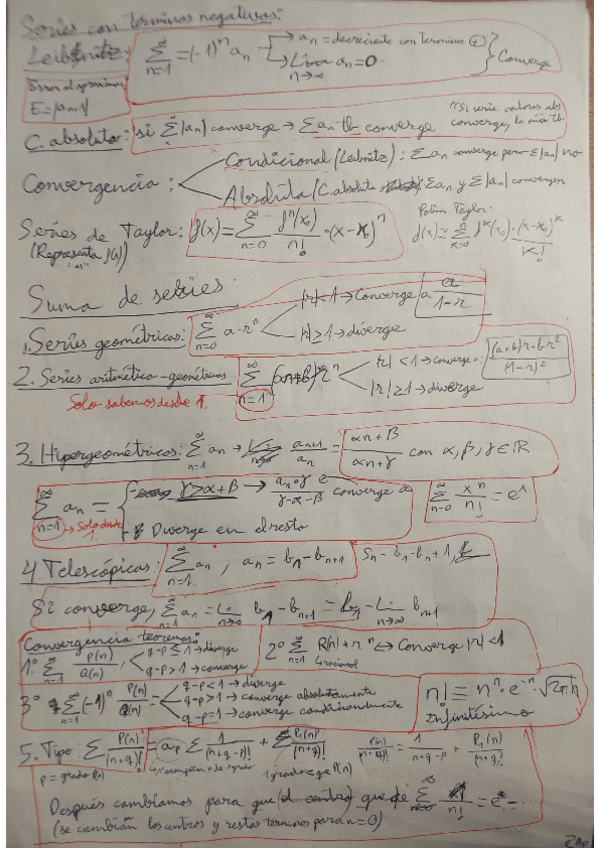 Series con terminos negativos:
Leibnitz: ∑ n=1 ∞ =(-1)^n a_n → a_n = decreciente con terminos ⊕
→ Lim n→∞ a_n = 0 } Converge
Error al aproximar
C. absoluta: si ∑ |a_n| converge → ∑ a_n tb converge "Si serie valores abs
converge, la mia tb
Convergencia: Condicional (Leibnitz): ∑ a_n converge pero ∑|a_n| no
Absoluta (C. absoluta): ∑ a_n y ∑|a_n| convergen
Series de Taylor: f(x) = ∑ n=0 ∞ f^n(x_0)/n! · (x-x_0)^n
(Representa f(x))
Polin Taylor:
f(x) = ∑ k=0 n f^k(x_0) · (x-x_0)^k / k!
Suma de series:
1. Series geométricas: ∑ n=0 ∞ a·r^n |r|<1 → Converge a a/(1-r)
|r|≥1 → diverge
2. Series aritmético-geométricas ∑ n=1 ∞ (an+b) r^n |r|<1 → converge a ((a+b)r-br²)/(1-r)²
|r|≥1 → diverge
Solo sabemos desde 1.
3. Hipergeométricas: ∑ n=1 ∞ a_n → a_{n+1}/a_n = (αn+β)/(αn+γ) con α, β, γ ∈ ℝ
∑ n=1 ∞ a_n = { γ>α+β → a_1·γ/(γ-α-β) converge a
Diverge en el resto
→ Solo desde 1.
∑ n=0 ∞ x^n/n! = e^x
4. Telescópicas: ∑ n=1 ∞ a_n, a_n = b_n - b_{n+1} S_n = b_1 - b_{n+1}
Si converge, ∑ n=1 ∞ a_n = Lim n→∞ b_1 - b_{n+1} = b_1 - Lim n→∞ b_{n+1}
Convergencia teoremas:
1º ∑ n=1 ∞ P(n)/Q(n) q-p≤1 → diverge
q-p>1 → converge
2º ∑ n=1 ∞ R(n)·r^n ⇔ Converge |r|<1
racional
3º ∑ n=1 ∞ (-1)^n P(n)/Q(n) = q-p<1 → diverge
q-p>1 → converge absolutamente
q-p=1 → converge condicionalmente
n! ≡ n^n · e^-n · √2πn
Infinitésimo
5. Tipo: ∑ P(n)/(n+q)! = a_p ∑ 1/(n+q-p)! + ∑ P_1(n)/(n+q)! P(n)/(n+q)! = 1/(n+q-p) + P_1(n)/(n+q)!
p = grado P(n) 1 grado &lt; que P(n)
Después cambiamos para que (el centro) quede ∑ n=0 ∞ 1/n! = e^x ...
(se cambian los centros y restas terminos para n=0)